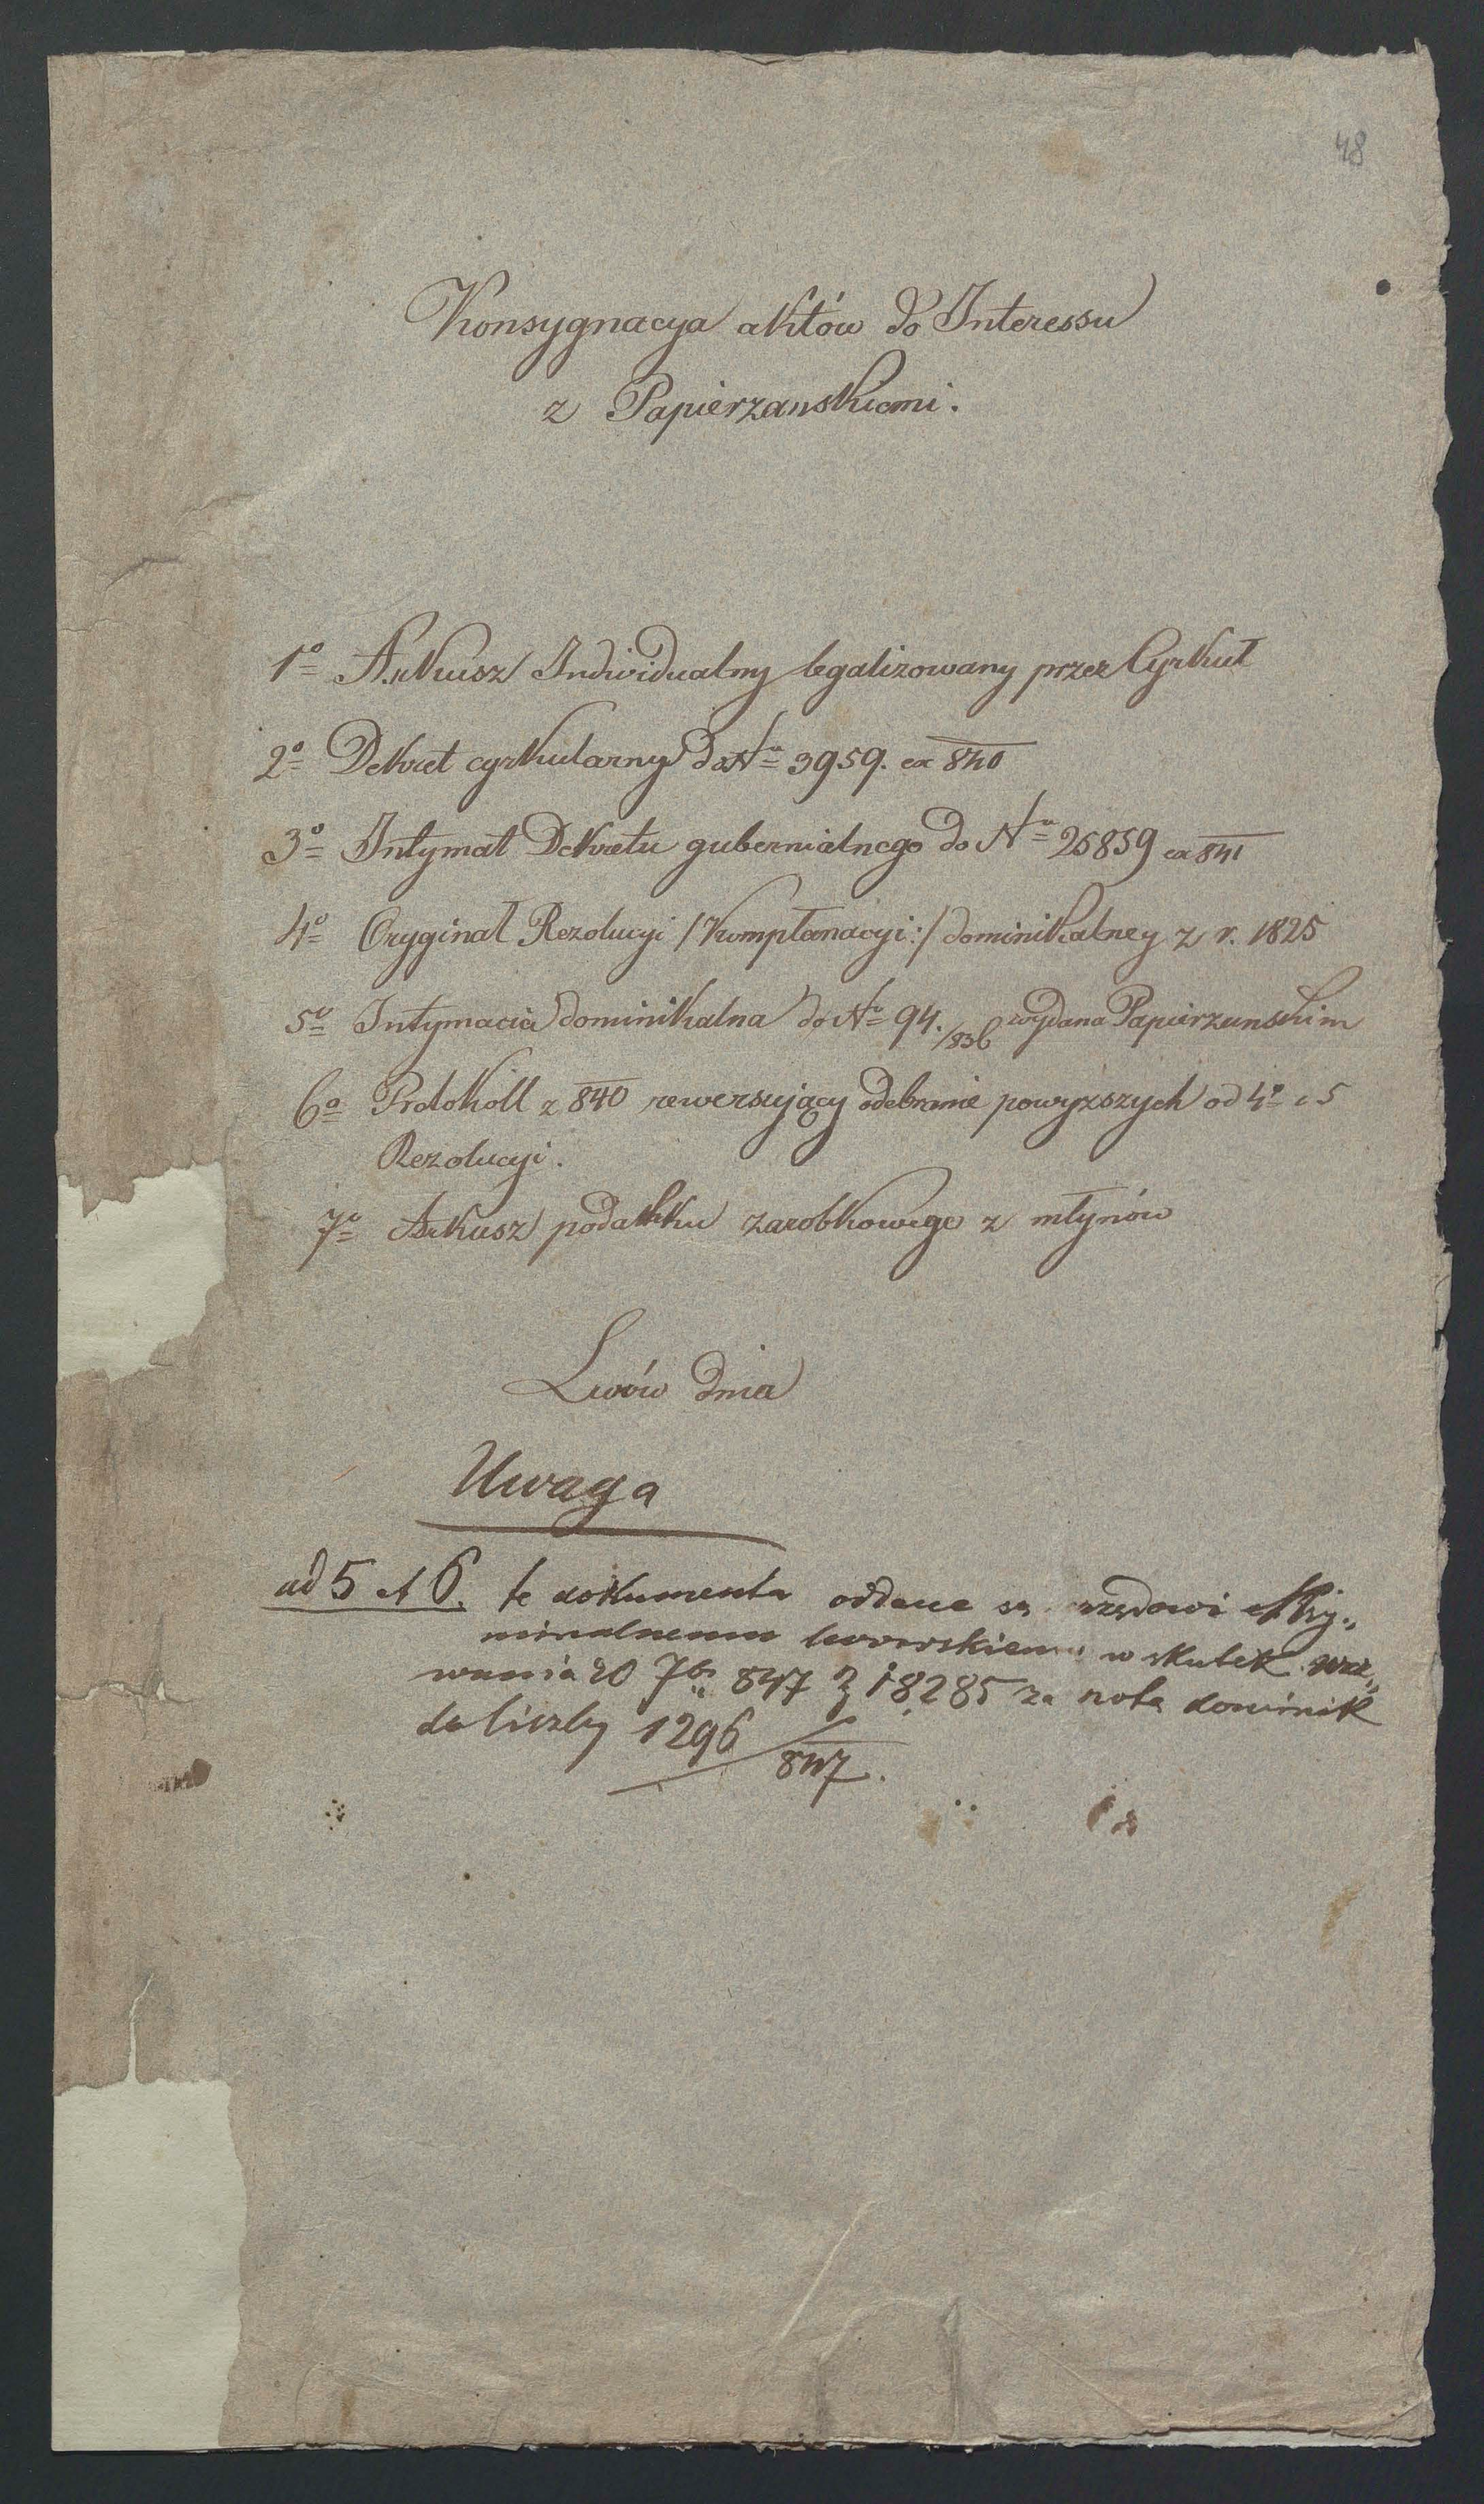 48
Konsygnacya aktów do Interessu
z Papierzanskiemi.
1º Arkusz Individualny legalizowany przez Cyrkuł
2º Dekret cyrkularny do Nº 3959. ex 840
3º Intymat Dekretu gubernialnego do Nº 25859 ex 841
4º Oryginał Rezolucyi /:Komplanacyi:/ dominikalney z r. 1825
5º Intymacia dominikalna do Nº 94./836 wydana Papierzanskim
6º Protokoll z 840 rewersujący odebranie powyższych od 4º i 5
Rezolucyi.
7º Arkusz podatku zarobkowego z młynów
Lwów dnia
Uwaga
ad 5 et 6. te dokumenta oddane są urzędowi Kry„
minalnemu lwowskiemu w skutek wez„
wania 20 7br 847 z 18285 za notą dominik
do liczby 1296/847.